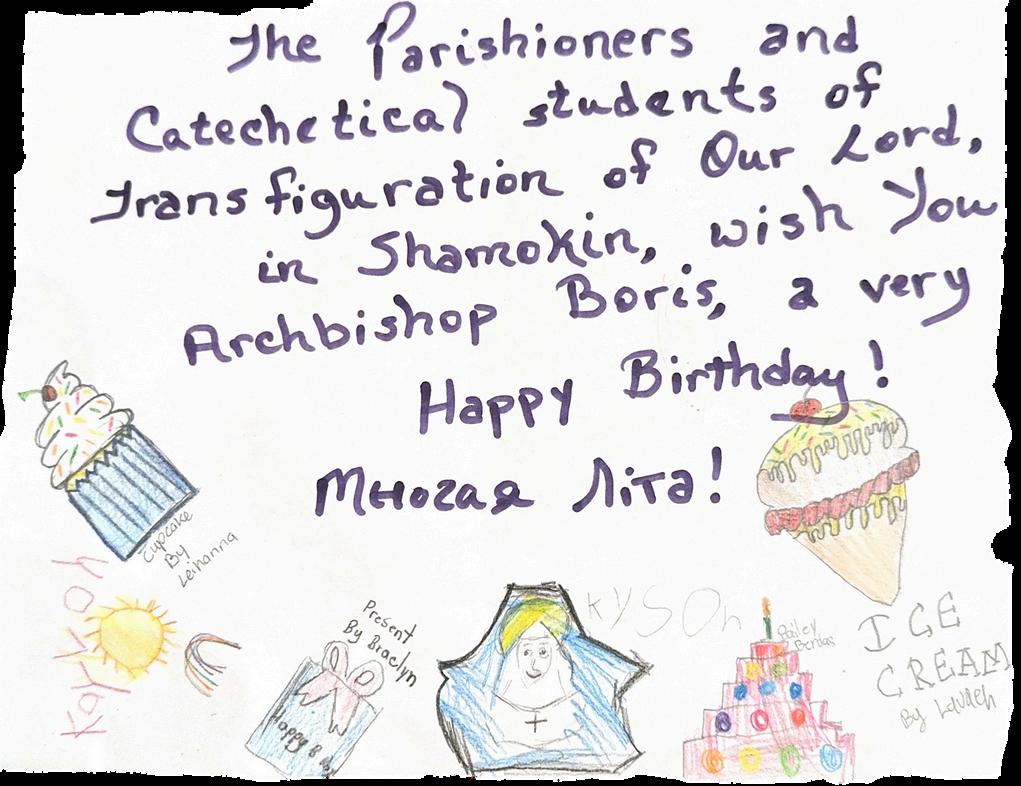 The Parishioners and
Catechetical students of
Transfiguration of Our Lord,
in Shamokin, wish You
Archbishop Boris, a very
Happy Birthday!
Многая Літа!
Cupcake
By
Leihanna
Present
By Braelyn
Happy B
Kyson
Bailey
ICE
CREAM
By